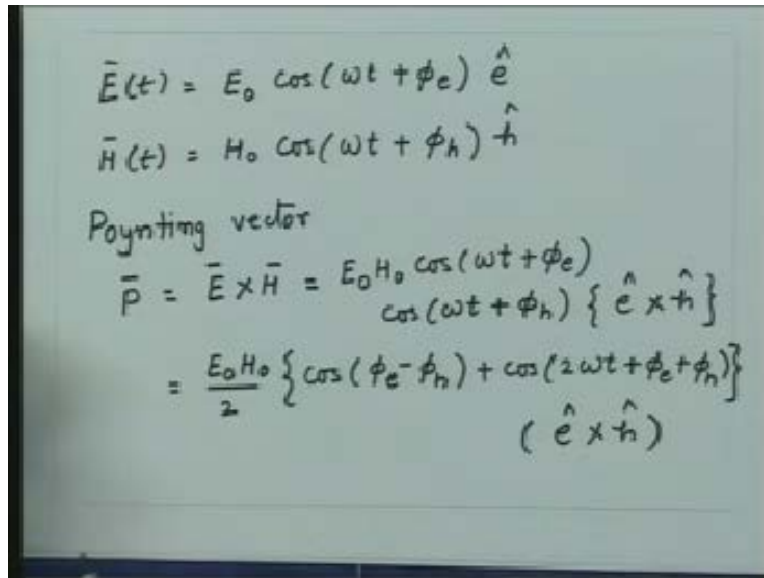 Ē(t) = E₀ cos(ωt + ϕₑ) ê
H̄(t) = H₀ cos(ωt + ϕₕ) ĥ
Poynting vector
P̄ = Ē × H̄ = E₀H₀ cos(ωt + ϕₑ)
cos(ωt + ϕₕ) { ê × ĥ }
= E₀H₀/2 { cos(ϕₑ - ϕₕ) + cos(2ωt + ϕₑ + ϕₕ) }
( ê × ĥ )